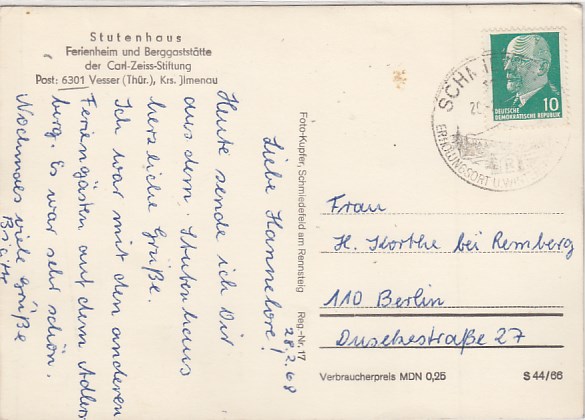 Stutenhaus
Ferienheim und Berggaststätte
der Carl-Zeiss-Stiftung
Post: 6301 Vesser (Thür.), Krs. Jlmenau
28.2.68
Liebe Hannelore!
Heute sende ich Dir
aus dem Stutenhaus
herzliche Grüße.
Ich war mit den anderen
Feriengästen auf dem Adlers
berg. Es war sehr schön.
Nochmals viele Grüße
Foto-Kupfer, Schmiedefeld am Rennsteig Reg.-Nr. 17
SCHMI
ERHOLUNGSORT U. WI
DEUTSCHE
DEMOKRATISCHE REPUBLIK
10
Frau
H. Korthe bei Remberg
110 Berlin
Dusekestraße 27
Verbraucherpreis MDN 0,25
S 44/66